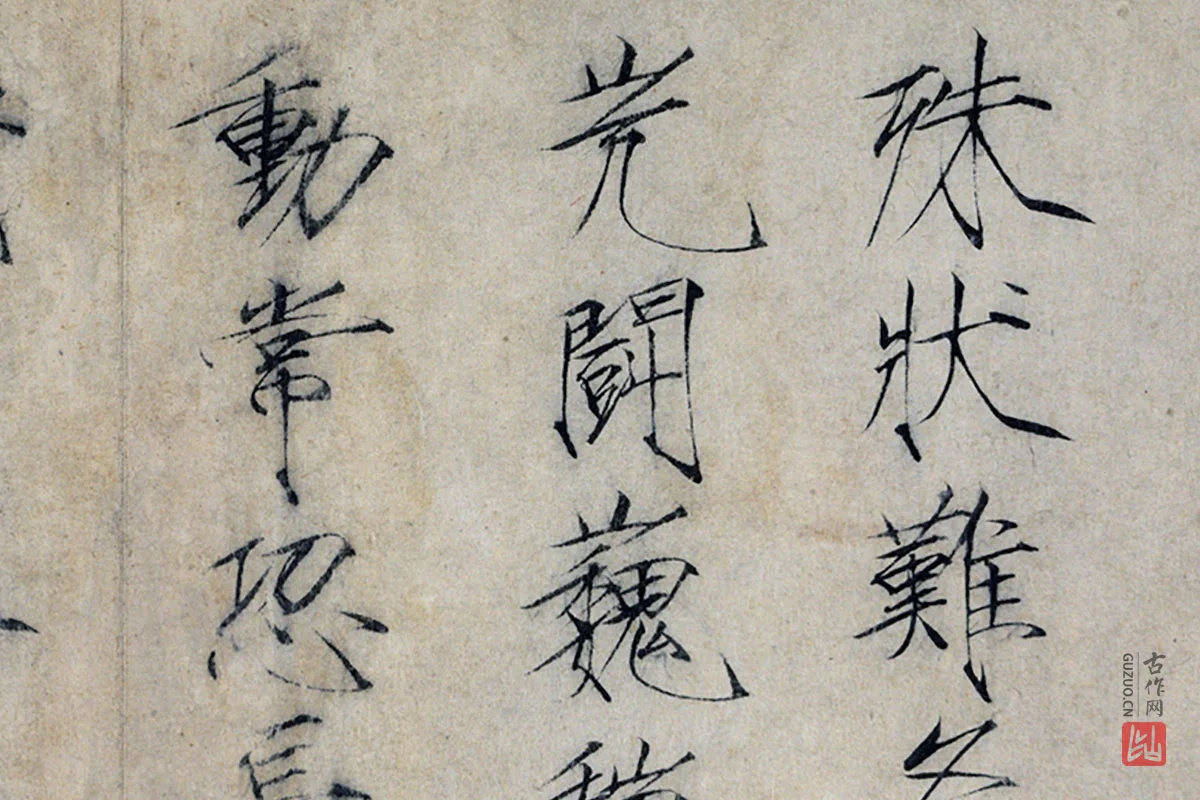 殊狀難
岏鬪巍
動常恐
古作网
GUZUO.CN